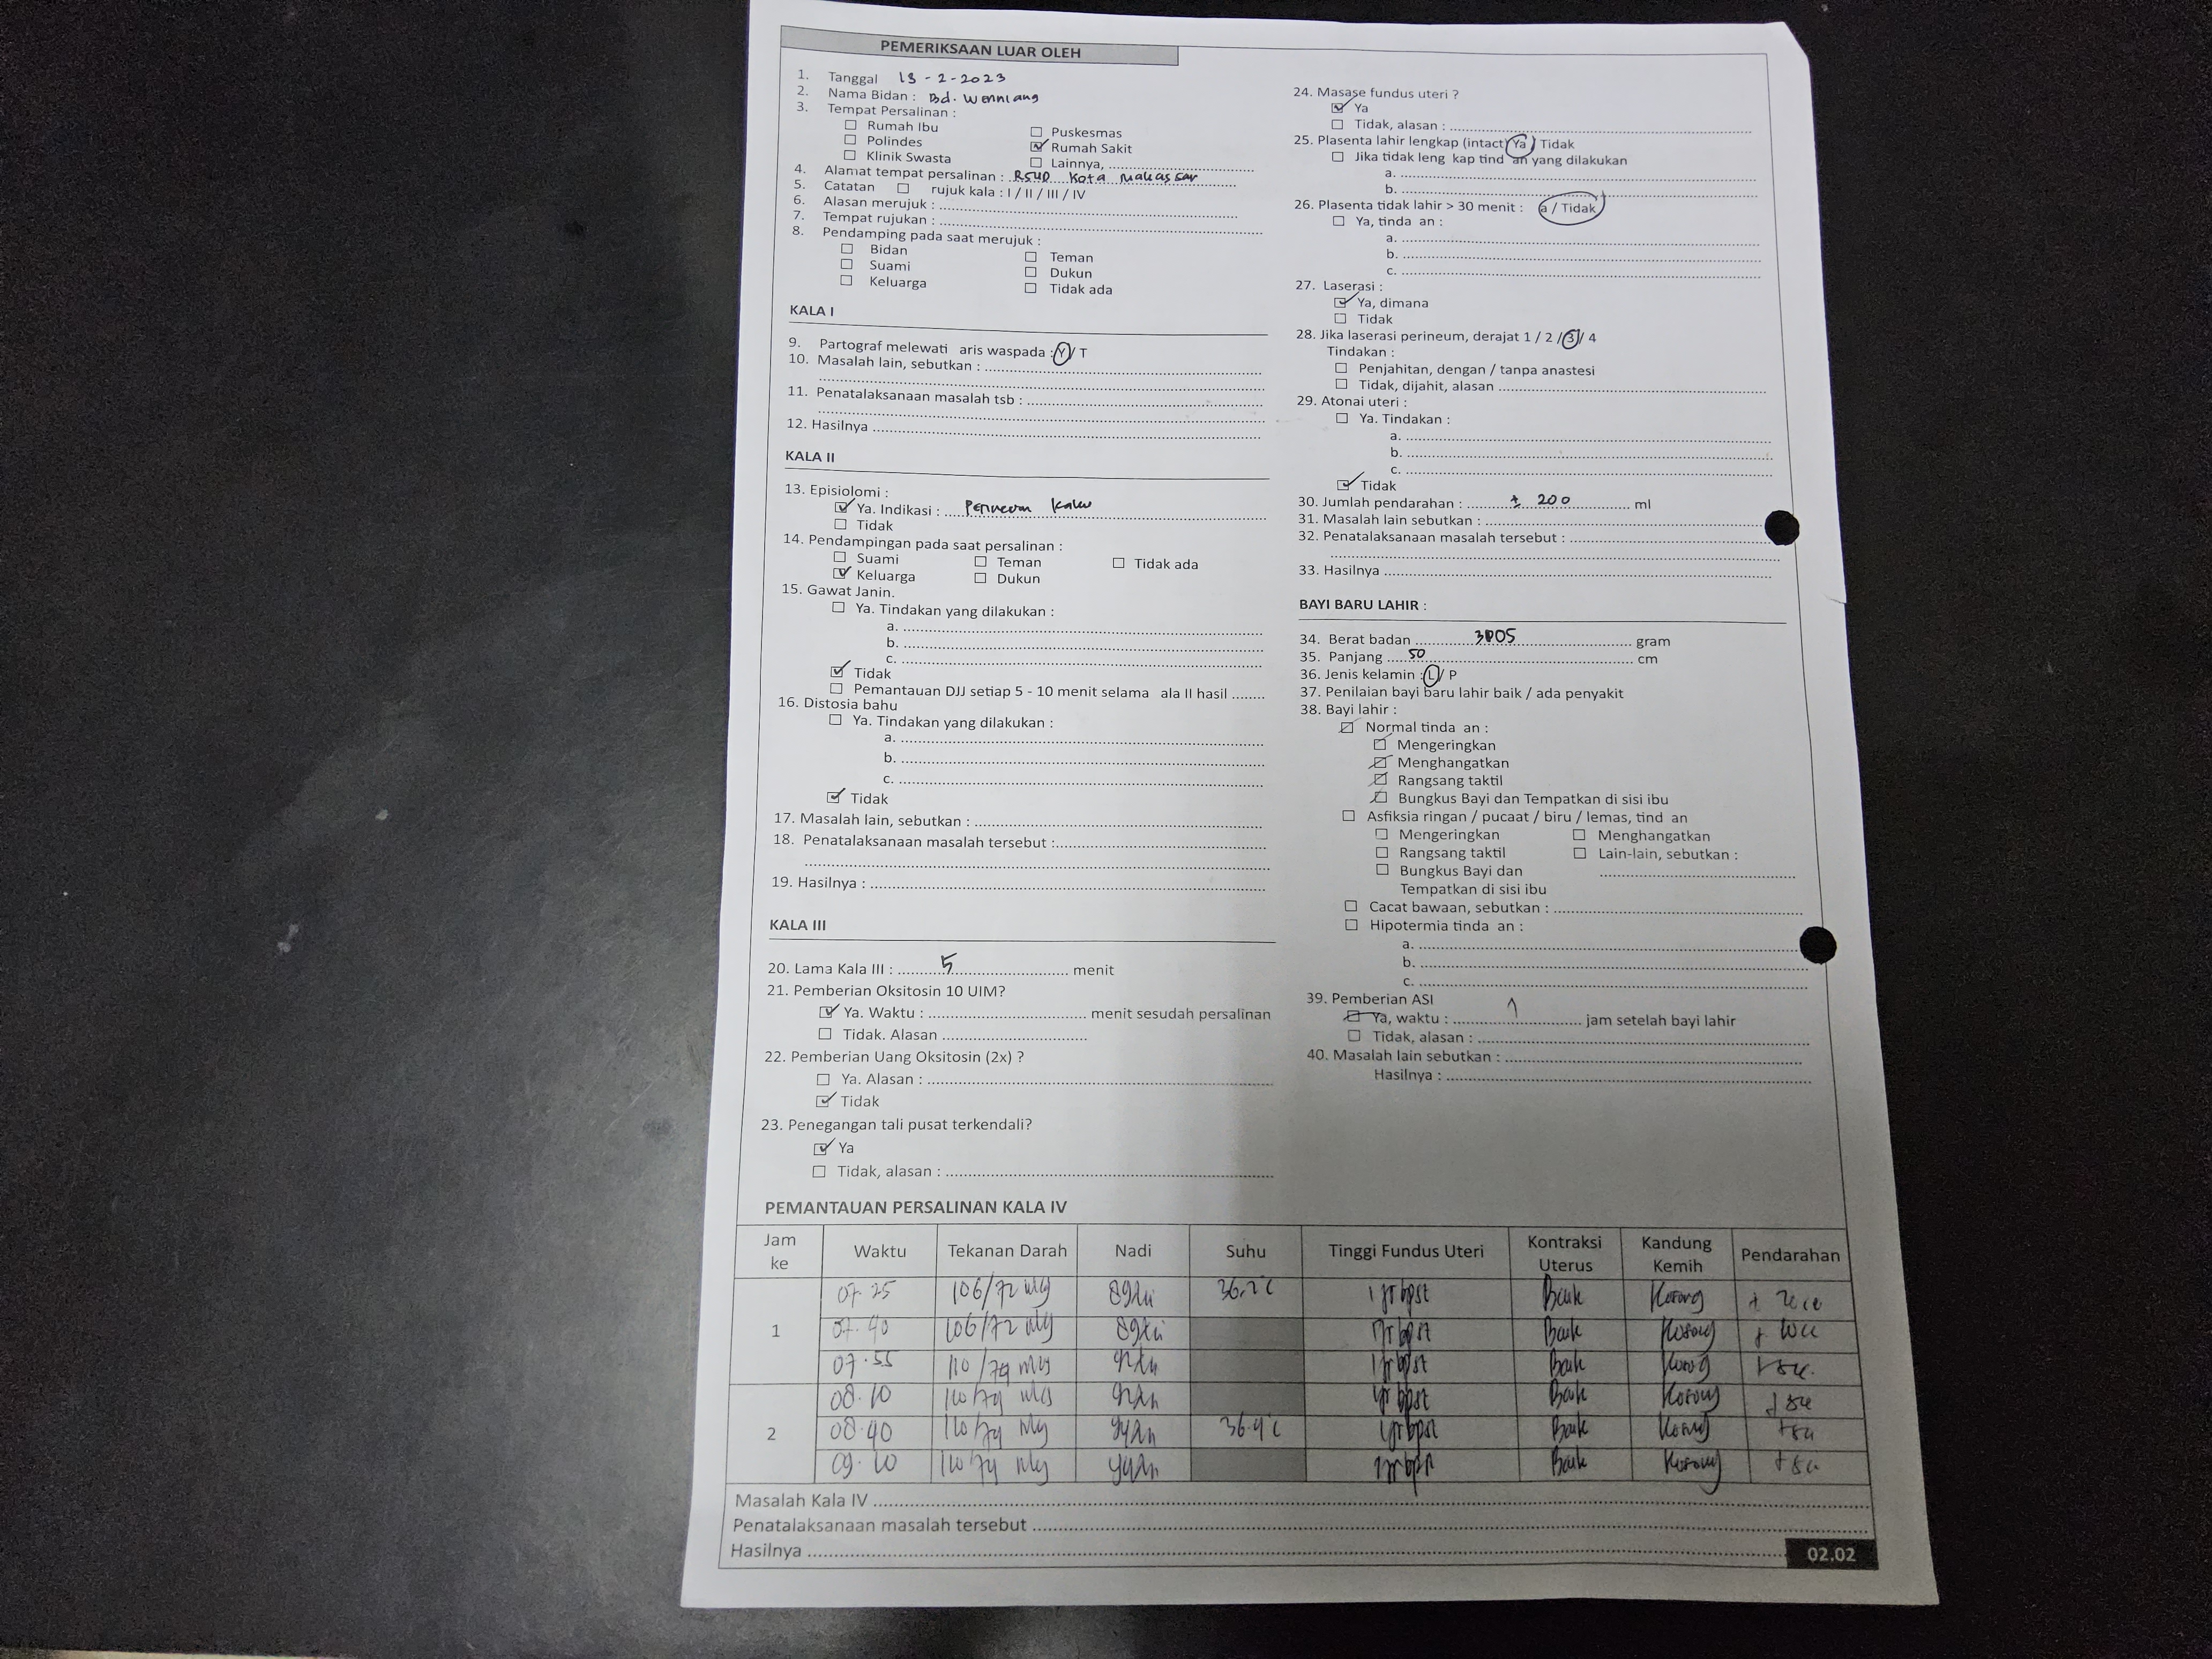 PEMERIKSAAN LUAR OLEH
1. Tanggal 13 - 2 - 2023
2. Nama Bidan : Bd.
3. Tempat Persalinan :
☐ Rumah Ibu ☐ Puskesmas
☐ Polindes ☑ Rumah Sakit
☐ Klinik Swasta ☐ Lainnya, ..............
4. Alamat tempat persalinan : RSUD Kota Makassar
5. Catatan ☐ rujuk kala : I / II / III / IV
6. Alasan merujuk : ..............
7. Tempat rujukan : ..............
8. Pendamping pada saat merujuk :
☐ Bidan ☐ Teman
☐ Suami ☐ Dukun
☐ Keluarga ☐ Tidak ada
KALA I
9. Partograf melewati aris waspada : Y / T
10. Masalah lain, sebutkan : ..............
11. Penatalaksanaan masalah tsb : ..............
12. Hasilnya ..............
KALA II
13. Episiolomi :
☑ Ya. Indikasi : perineum kaku
☐ Tidak
14. Pendampingan pada saat persalinan :
☐ Suami ☐ Teman ☐ Tidak ada
☑ Keluarga ☐ Dukun
15. Gawat Janin.
☐ Ya. Tindakan yang dilakukan :
a. ..............
b. ..............
c. ..............
☑ Tidak
☐ Pemantauan DJJ setiap 5 - 10 menit selama ala II hasil ........
16. Distosia bahu
☐ Ya. Tindakan yang dilakukan :
a. ..............
b. ..............
c. ..............
☑ Tidak
17. Masalah lain, sebutkan : ..............
18. Penatalaksanaan masalah tersebut : ..............
19. Hasilnya : ..............
KALA III
20. Lama Kala III : 5 menit
21. Pemberian Oksitosin 10 UIM?
☑ Ya. Waktu : .............. menit sesudah persalinan
☐ Tidak. Alasan ..............
22. Pemberian Uang Oksitosin (2x) ?
☐ Ya. Alasan : ..............
☑ Tidak
23. Penegangan tali pusat terkendali?
☑ Ya
☐ Tidak, alasan : ..............
24. Masase fundus uteri ?
☑ Ya
☐ Tidak, alasan : ..............
25. Plasenta lahir lengkap (intact) Ya / Tidak
☐ Jika tidak leng kap tind an yang dilakukan
a. ..............
b. ..............
26. Plasenta tidak lahir > 30 menit : a / Tidak
☐ Ya, tinda an :
a. ..............
b. ..............
c. ..............
27. Laserasi :
☑ Ya, dimana
☐ Tidak
28. Jika laserasi perineum, derajat 1 / 2 / 3 / 4
Tindakan :
☐ Penjahitan, dengan / tanpa anastesi
☐ Tidak, dijahit, alasan ..............
29. Atonai uteri :
☐ Ya. Tindakan :
a. ..............
b. ..............
c. ..............
☑ Tidak
30. Jumlah pendarahan : ± 200 ml
31. Masalah lain sebutkan : ..............
32. Penatalaksanaan masalah tersebut : ..............
33. Hasilnya ..............
BAYI BARU LAHIR :
34. Berat badan gram
35. Panjang 50 cm
36. Jenis kelamin : L / P
37. Penilaian bayi baru lahir baik / ada penyakit
38. Bayi lahir :
☑ Normal tinda an :
☑ Mengeringkan
☑ Menghangatkan
☑ Rangsang taktil
☑ Bungkus Bayi dan Tempatkan di sisi ibu
☐ Asfiksia ringan / pucaat / biru / lemas, tind an
☐ Mengeringkan ☐ Menghangatkan
☐ Rangsang taktil ☐ Lain-lain, sebutkan :
☐ Bungkus Bayi dan ..............
Tempatkan di sisi ibu
☐ Cacat bawaan, sebutkan : ..............
☐ Hipotermia tinda an :
a. ..............
b. ..............
c. ..............
39. Pemberian ASI
☑ Ya, waktu : 1 jam setelah bayi lahir
☐ Tidak, alasan : ..............
40. Masalah lain sebutkan : ..............
Hasilnya : ..............
PEMANTAUAN PERSALINAN KALA IV
Jam ke Waktu Tekanan Darah Nadi Suhu Tinggi Fundus Uteri Kontraksi Uterus Kandung Kemih Pendarahan
1 07.25 106/72 36.2°C Baik Kosong
07.40 106/72 Baik Kosong
07.55 110/79 Baik Kosong
2 08.10 110/79 Baik Kosong
08.40 110/79 Baik Kosong
09.10 110/79 Baik Kosong
Masalah Kala IV ..............
Penatalaksanaan masalah tersebut ..............
Hasilnya ..............
02.02